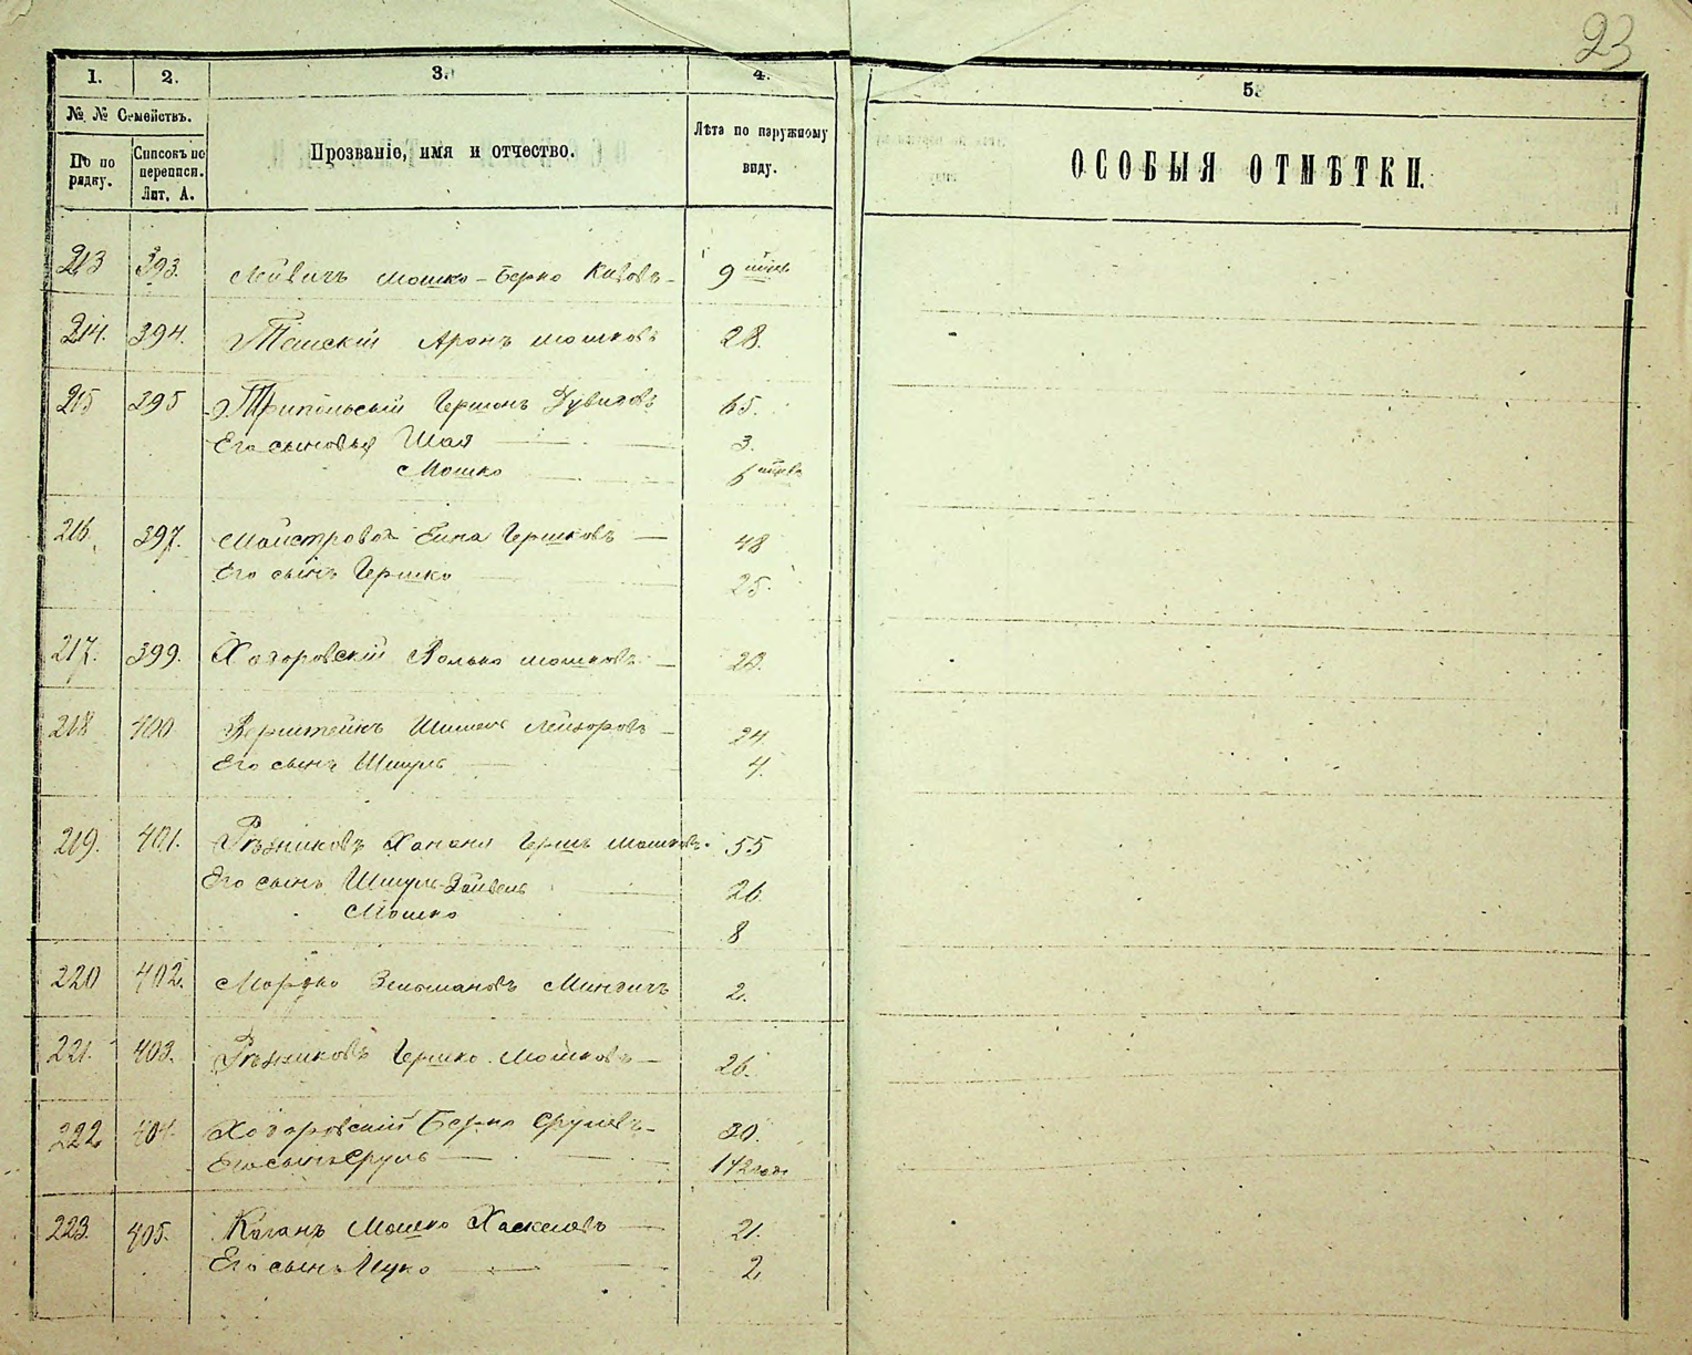 23
1. 2. 3. 4. 5.
№ № Семействъ.
По по рядку.
Списокъ по переписи. Лит. А.
Прозваніе, имя и отчество.
Лѣта по наружному виду.
ОСОБЫЯ ОТМѢТКИ.
213 393. Мошко-Берко 9
214. 394. Аронъ Мошковъ 28.
215 395 Трипольскій Гершонъ Дувидовъ 65.
Его сыновья Шая 3.
Мошко 6
216. 397. Майстровой Гершковъ — 48
Его сынъ Гершко 25.
217. 399. Ходоровскій Волько Мошковъ —
218 400 Лейзоровъ — 24.
Его сынъ Шмуль 4.
219. 401. Рѣзниковъ Ханани Гершъ Мошковъ. 55
Его сынъ Шмуль-Зайвель 26.
Мошко 8
220 402. Мордко Зельмановъ 2.
221. 403. Рѣзниковъ Гершко Мошковъ — 26.
222 404. Ходоровскій Берко Срулевъ — 30.
Его сынъ Сруль — 1 1/2 года
223. 405. Коганъ Мошко Хаскелевъ — 21.
Его сынъ — 2,